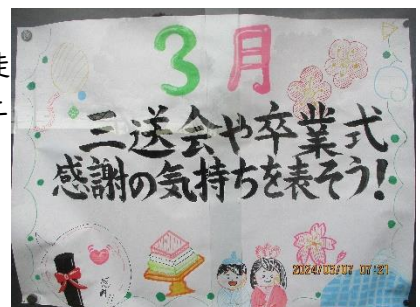 3月
三送会や卒業式
感謝の気持ちを表そう!
2024/03/07 07:21